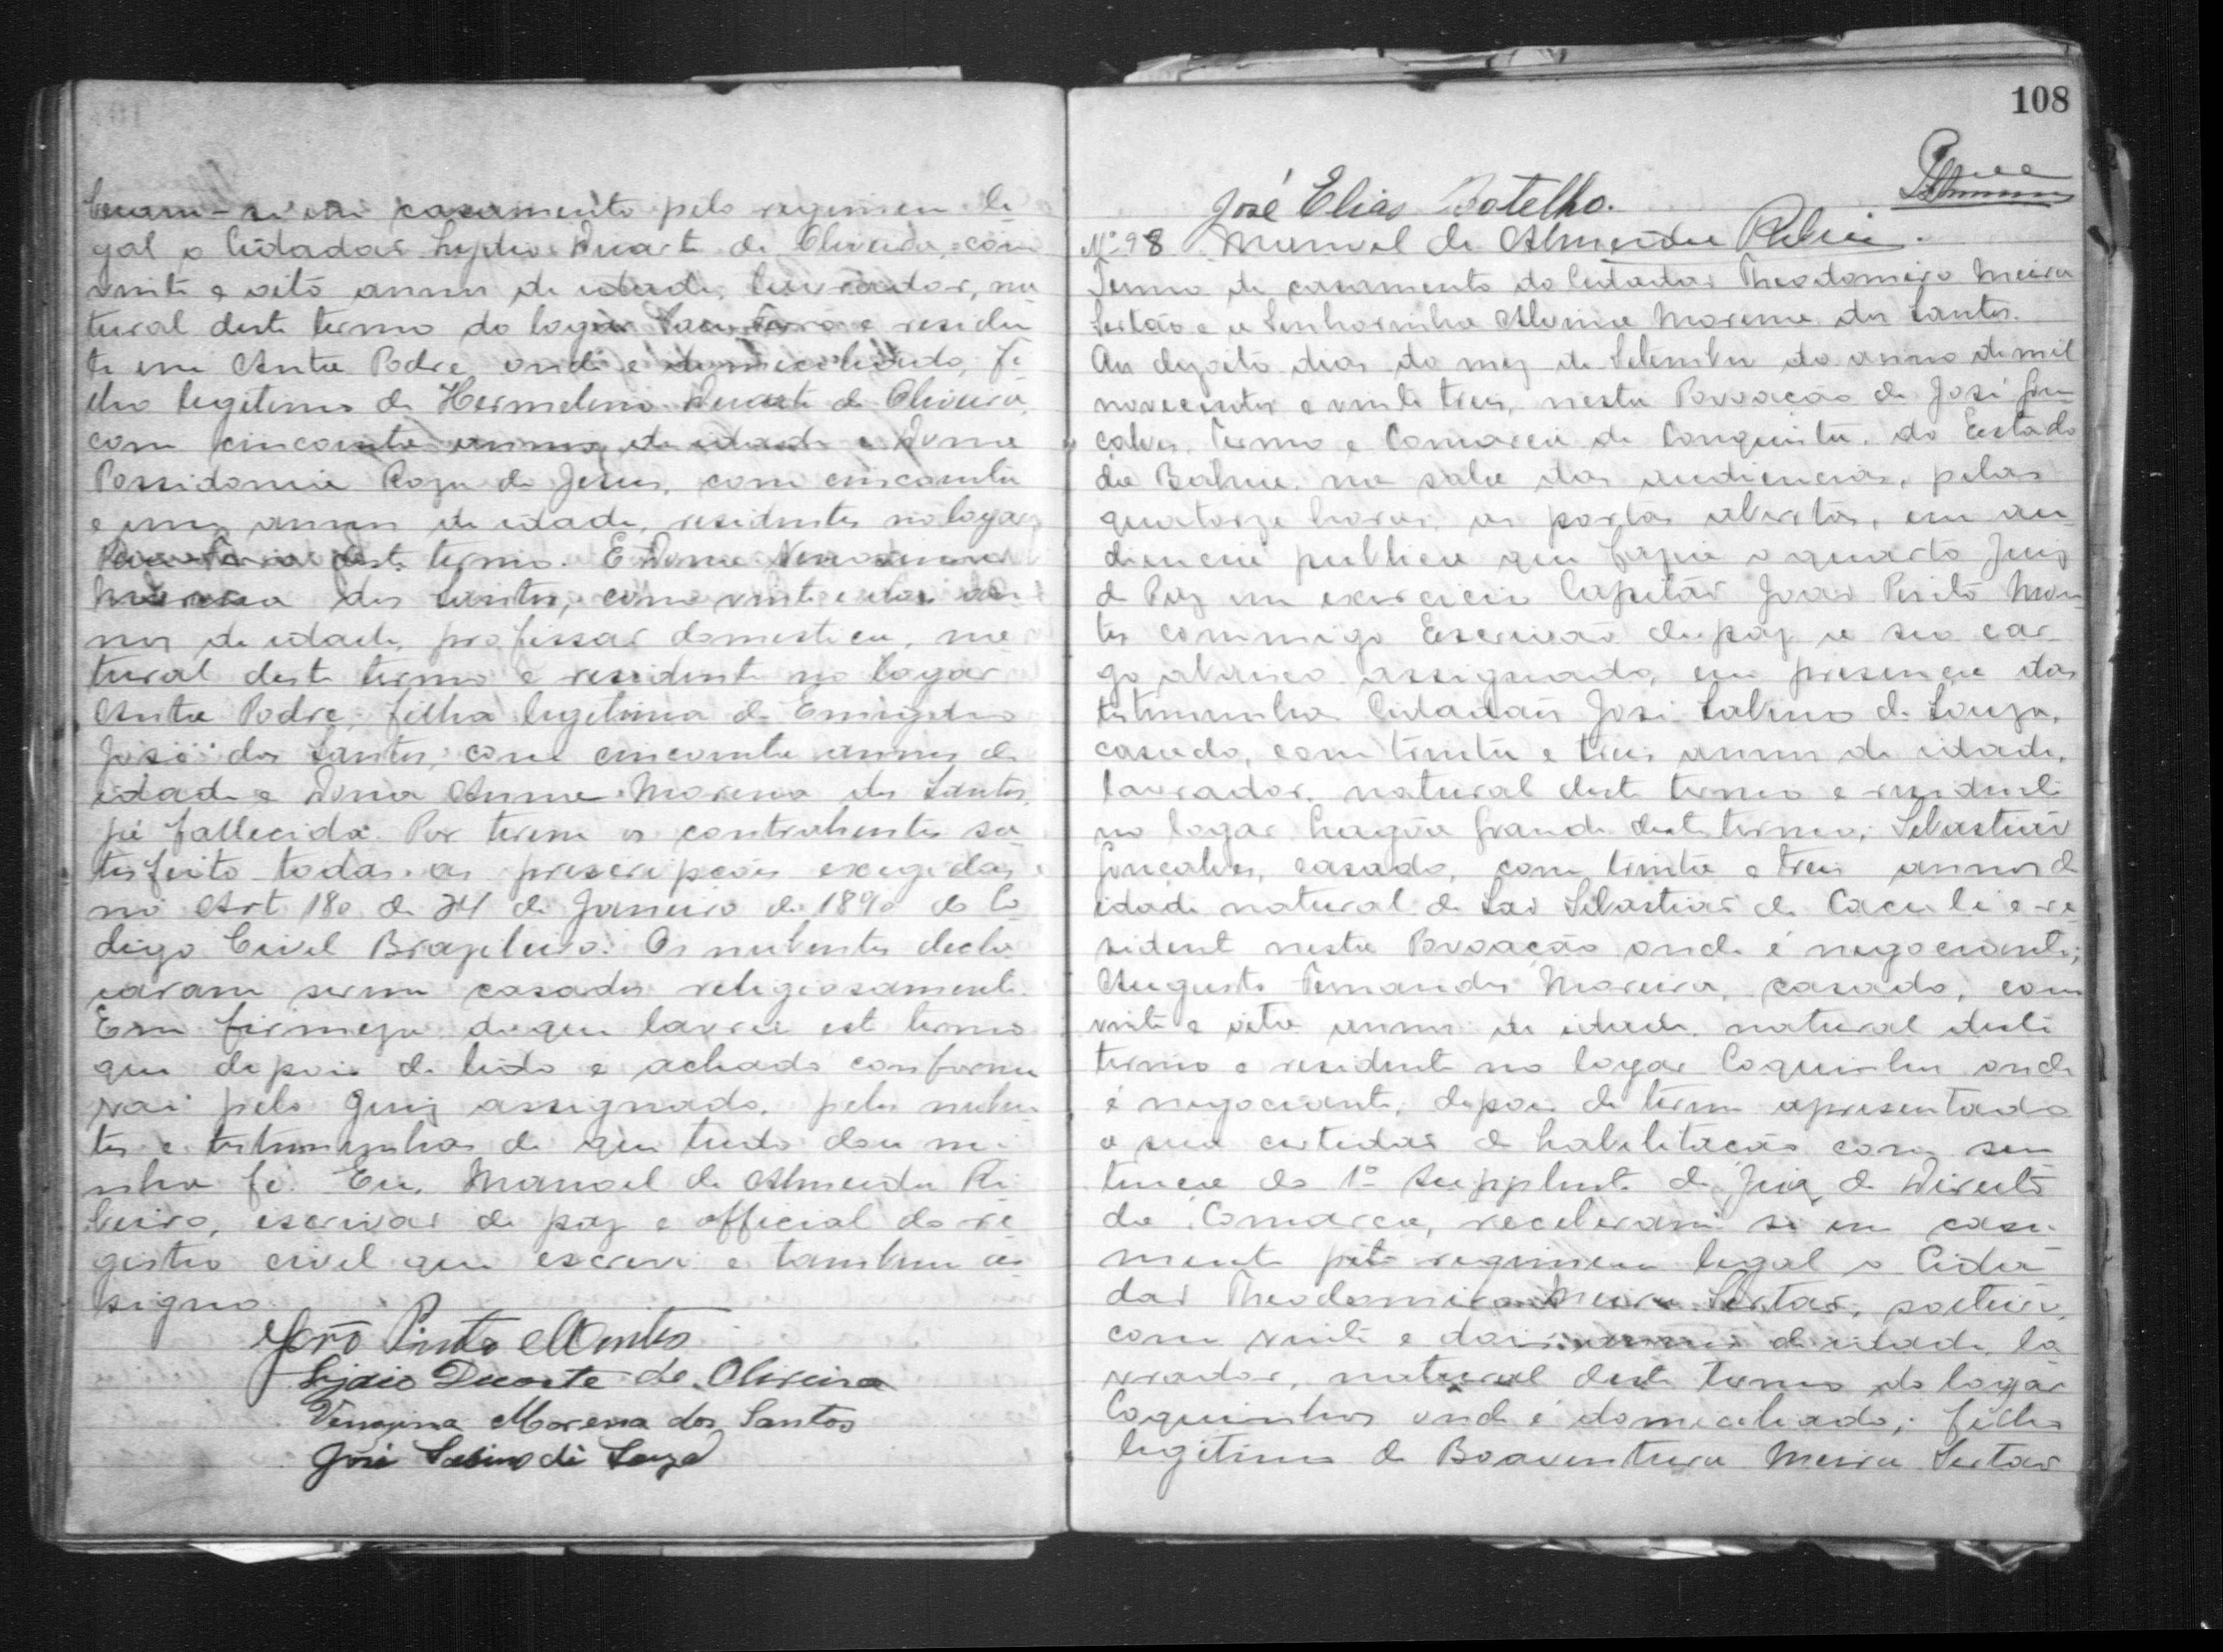 beram-se em casamento pelo regimen le
gal o Cidadão Lydio Duarte de Oliveira, com
vinte e oito annos de idade, lavrador, na
tural deste termo do logar e residen
te em Anta Podre, onde é domiciliado, fi
lho legitimo de Hermelino Duarte de Oliveira,
com cincoenta annos de idade e Dona
Possidonia Roza de Jesus, com cincoenta
e um annos de idade, residentes no logar
deste termo. E Dona
Morena dos Santos, com vinte e dois an
nos de idade, profissão domestica, na
tural deste termo e residente no logar
Anta Podre, filha legitima de Emigdio
José dos Santos, com cincoenta annos de
idade e Dona Anna Morena dos Santos,
já fallecida. Por terem os contrahentes sa
tisfeito todas as prescripções exigidas
no Art 180 de 24 de Janeiro de 1890 do Co
digo Civel Brazileiro. Os nubentes decla
raram serem casados religiosamente.
Em firmeza do que lavrei este termo
que depois de lido e achado conforme
vai pelo Juiz assignado, pelos nuben
tes e testemunhas do que tudo dou mi
nha fé. Eu, Manoel de Almeida Ri
beiro, escrivão de paz e official do re
gistro civel que escrevi e tambem as
signo.
João Pinto Montes
Lydio Duarte de Oliveira
Morena dos Santos
José Sabino de Souza
108
José Elias Botelho.
Nº 98 Manoel de Almeida Ribeiro.
Termo de casamento do Cidadão Theodomiro Meira
Sertão e a Senhorinha Alvina Morena dos Santos.
Aos dezoito dias do mez de Setembro do anno de mil
novecentos e vinte tres, nesta Povoação de José Gon
çalves, Termo e Comarca de Conquista, do Estado
da Bahia, na sala das audiencias, pelas
quatorze horas, as portas abertas, em au
diencia publica que fazia o quarto Juiz
de Paz em exercicio Capitão João Pinto Mon
tes commigo Escrivão de paz a seu car
go abaixo assignado, em presença das
testemunhas Cidadãos José Sabino de Souza,
casado, com trinta e tres annos de idade,
lavrador, natural deste termo e residente
no logar Lagôa Grande deste termo; Sebastião
Gonçalves, casado, com trinta e tres annos de
idade natural de São Sebastião de Caculé e re
sidente nesta Povoação onde é negociante;
Augusto Fernandes Moreira, casado, com
vinte e oito annos de idade, natural deste
termo e residente no logar Coquinhos onde
é negociante, depois de terem apresentado
a sua certidão de habilitação com sen
tença do 1º Supplente de Juiz de Direito
da Comarca, receberam se em casa
mento pelo regimen legal o Cida
dão Theodomiro Meira Sertão, solteiro,
com vinte e dois annos de idade, la
vrador, natural deste termo do logar
Coquinhos onde é domiciliado; filho
legitimo de Boaventura Meira Sertão